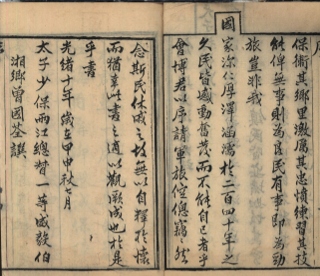 保衛其鄉里激厲其忠憤練習其技
能俾無事則為良民有事即為勁
旅豈非我
國
家深仁厚澤涵濡於二百四十年之
久民皆感動奮茂而不能自已者乎
會博君以序請軍旅倥傯輒慨然
念斯民休戚之故無以自釋於懷
而猶喜此書之適以觀厥成也於是
乎書
光緒十年歲在甲申秋七月
太子少保兩江總督一等威毅伯
湘鄉曾國荃譔